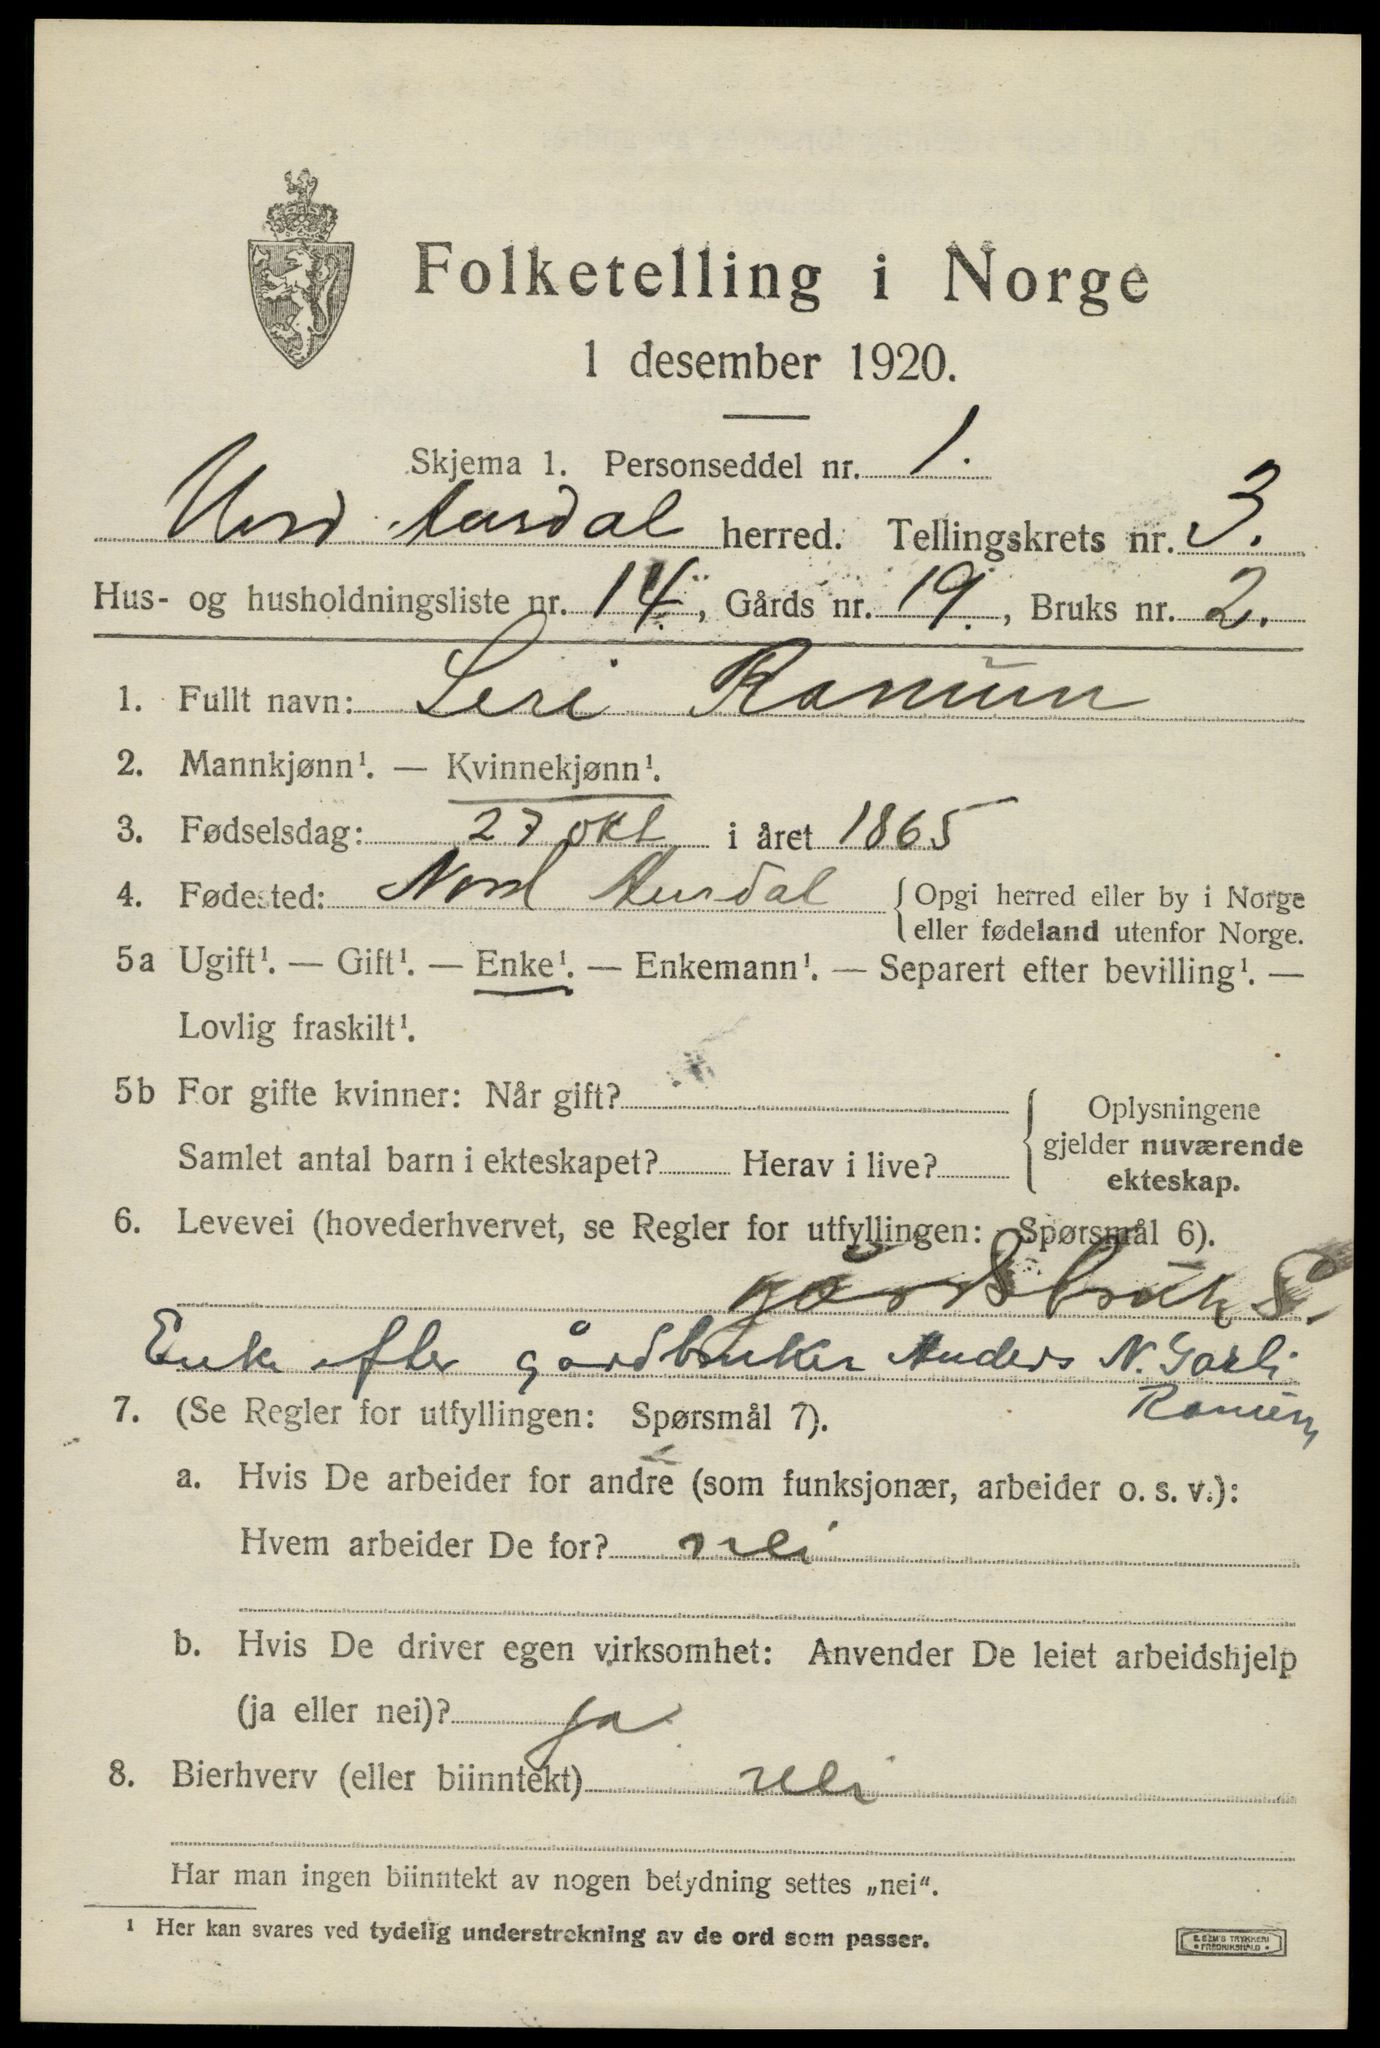 Folketelling i Norge
1 desember 1920.
Skjema 1. Personseddel nr. 1.
Nord Aurdal herred. Tellingskrets nr. 3.
Hus- og husholdningsliste nr. 14, Gårds nr. 19, Bruks nr. 2.
1. Fullt navn: Siri Ranum
2. Mannkjønn¹. — Kvinnekjønn¹.
3. Fødselsdag: 27 okt i året 1865
4. Fødested: Nord Aurdal { Opgi herred eller by i Norge
eller fødeland utenfor Norge.
5a Ugift¹. — Gift¹. — Enke¹. — Enkemann¹. — Separert efter bevilling¹. —
Lovlig fraskilt¹.
5b For gifte kvinner: Når gift?
Samlet antal barn i ekteskapet? Herav i live?
{ Oplysningene
gjelder nuværende
ekteskap.
6. Levevei (hovederhvervet, se Regler for utfyllingen: Spørsmål 6).
gårdsbruk S.
Enke efter gårdbruker Anders N. Garli
Ranum
7. (Se Regler for utfyllingen: Spørsmål 7).
a. Hvis De arbeider for andre (som funksjonær, arbeider o. s. v.):
Hvem arbeider De for? nei
b. Hvis De driver egen virksomhet: Anvender De leiet arbeidshjelp
(ja eller nei)? ja
8. Bierhverv (eller biinntekt) nei
Har man ingen biinntekt av nogen betydning settes „nei“.
¹ Her kan svares ved tydelig understrekning av de ord som passer.
E. SEM'S TRYKKERI
• FREDRIKSHALD •